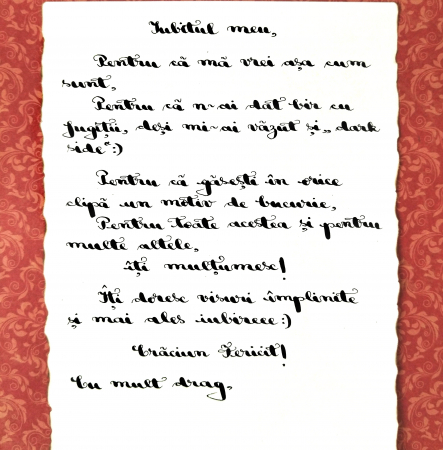 Iubitul meu,
Pentru că mă vrei așa cum
sunt,
Pentru că n-ai dat bir cu
fugiții, deși mi-ai văzut și „dark
side":)
Pentru că găsești în orice
clipă un motiv de bucurie,
Pentru toate acestea și pentru
multe altele,
îți mulțumesc!
Îți doresc visuri împlinite
și mai ales iubireee:)
Crăciun Fericit!
Cu mult drag,